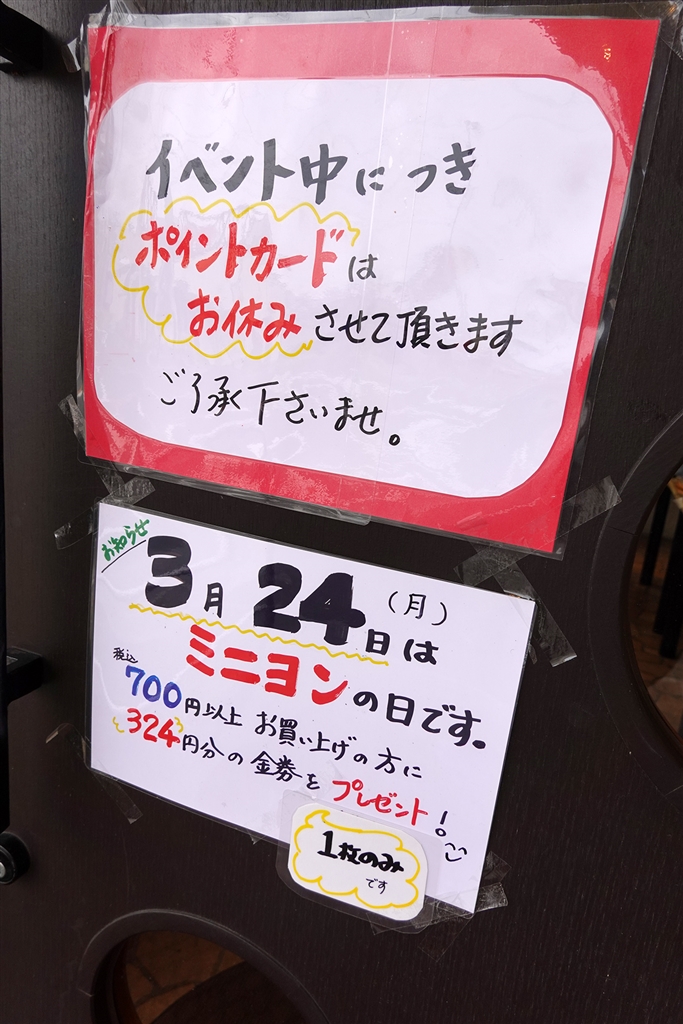 イベント中につき
ポイントカードは
お休みさせて頂きます
ご了承下さいませ。
お知らせ
3月24日(月)は
ミニヨンの日です。
税込
700円以上お買い上げの方に
324円分の金券をプレゼント!
1枚のみ
です